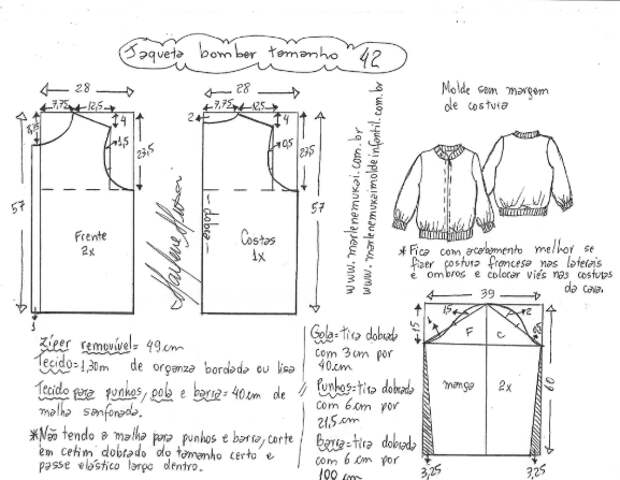 Jaqueta bomber tamanho 42
28
7,75
12,5
4
1,5
23,5
57
Frente
2x
1
28
7,75
12,5
2
4
0,5
23,5
57
dobra
Costas
1x
Marlene Mukai
www.marlenemukai.com.br
www.marlenemukaimoldeinfantil.com.br
Molde sem margem
de costura
*Fica com acabamento melhor se
fizer costura francesa nas laterais
e ombros e colocar viés nas costuras
da cava.
39
15
1,5
2
F
C
manga
2x
60
3,25
3,25
Zíper removível = 49cm
Tecido = 1,30m de organza bordada ou lisa
Tecido para punhos, gola e barra = 40cm de
malha sanfonada.
*Não tendo a malha para punhos e barra, corte
em cetim dobrado do tamanho certo e
passe elástico largo dentro.
Gola = tira dobrada
com 3cm por
40cm
Punhos = tira dobrada
com 6cm por
21,5cm
Barra = tira dobrada
com 6cm por
100cm